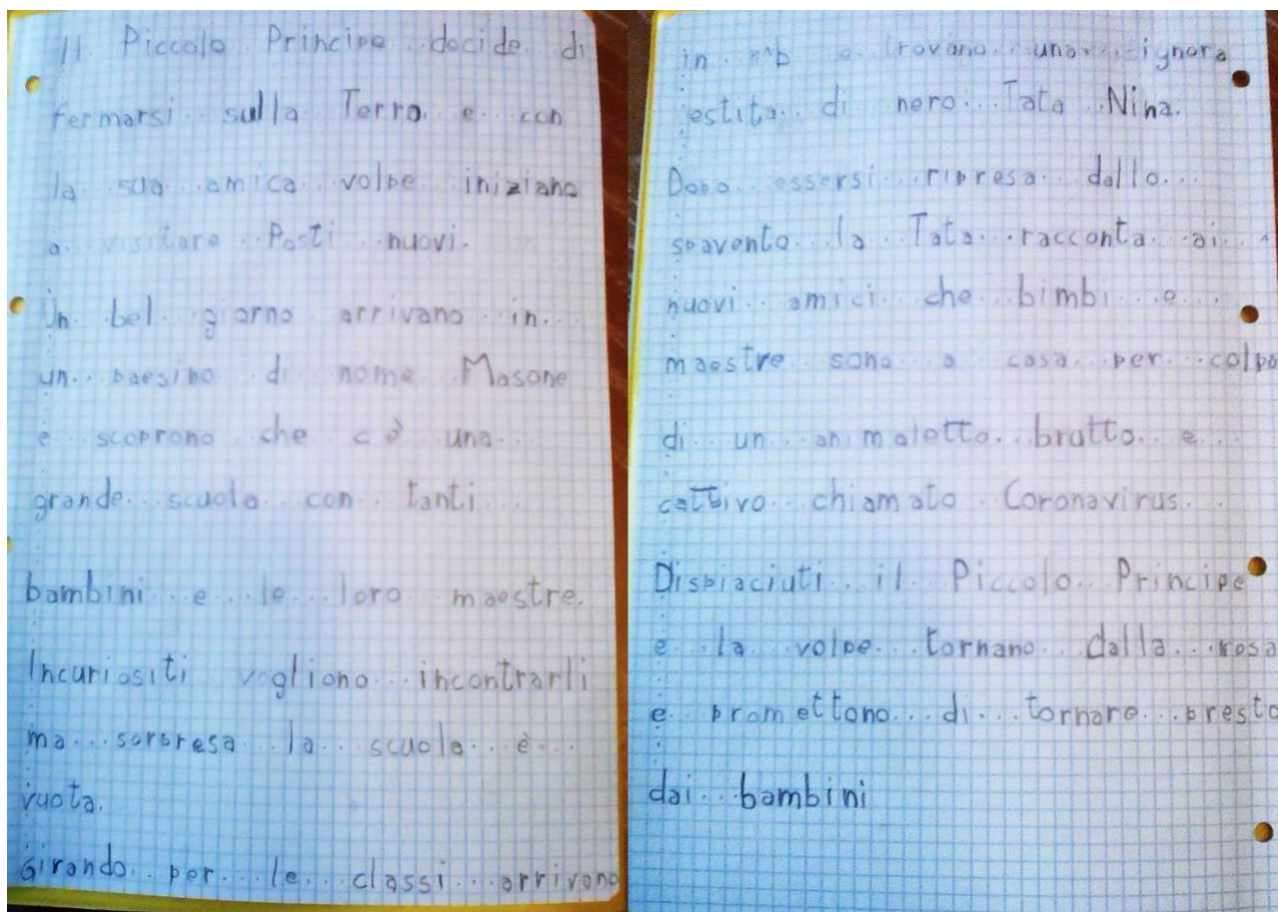 Il Piccolo Principe decide di
fermarsi sulla Terra e con
la sua amica volpe iniziano
a visitare Posti nuovi.
Un bel giorno arrivano in
un paesino di nome Masone
e scoprono che c è una
grande scuola con tanti
bambini e le loro maestre.
Incuriositi vogliono incontrarli
ma sorpresa la scuola è
vuota.
Girando per le classi arrivano
in e trovano una signora
vestita di nero Tata Nina.
Dopo essersi ripresa dallo
spavento la Tata racconta ai
nuovi amici che bimbi e
maestre sono a casa per colpa
di un animaletto brutto e
cattivo chiamato Coronavirus.
Dispiaciuti il Piccolo Principe
e la volpe tornano dalla rosa
e promettono di tornare presto
dai bambini